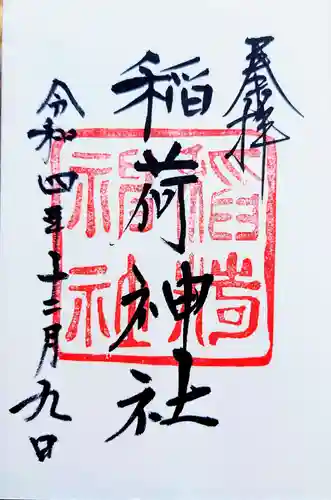 奉拝
稲荷神社
稲荷
神社
令和四年十二月九日